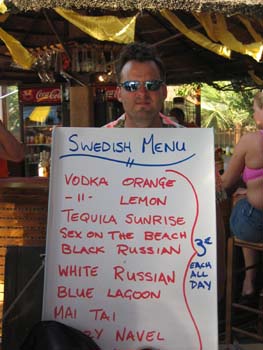 Coca-Cola
SWEDISH MENU
VODKA ORANGE
-11- LEMON
TEQUILA SUNRISE
SEX ON THE BEACH
BLACK RUSSIAN
WHITE RUSSIAN
BLUE LAGOON
MAI TAI
NAVEL
3€
EACH
ALL
DAY